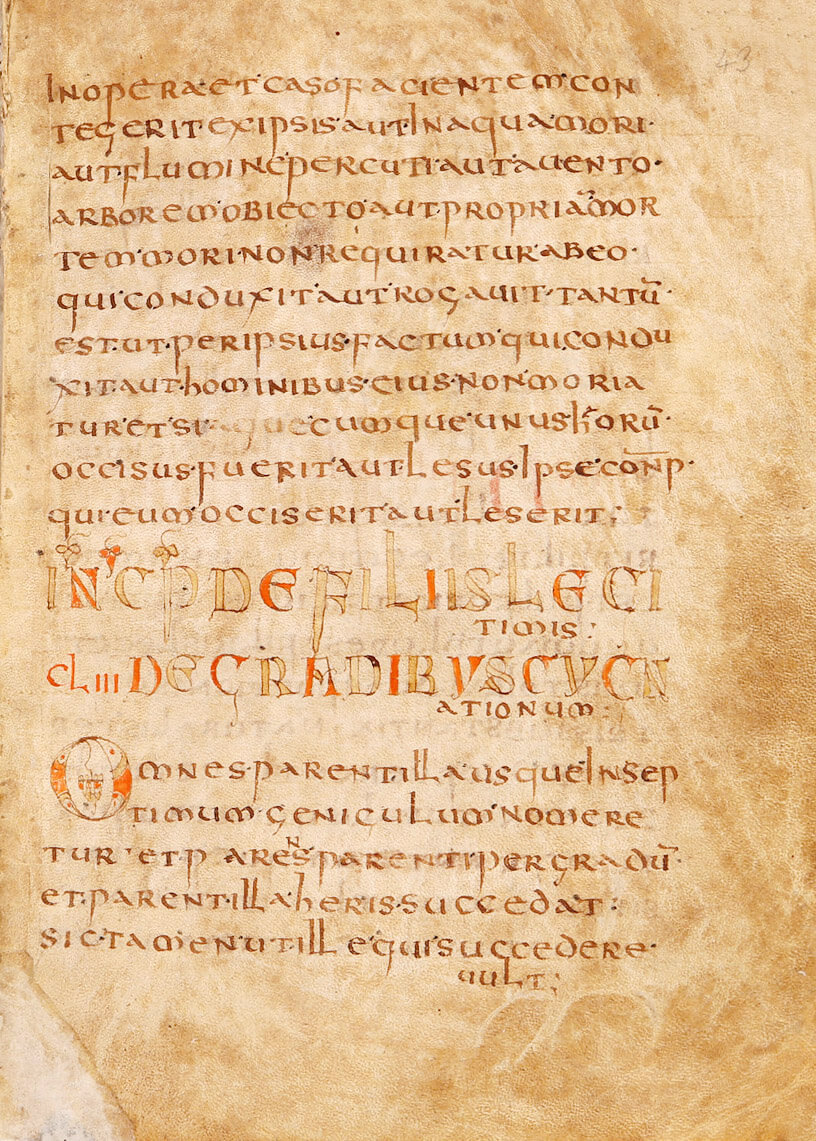 43
INOPERAETCASOFACIENTEMCON
TEGERITEXIPSISAUTINAQUAMORI·
AUTFLUMINEPERCUTIAUTAUENTO·
ARBOREMOBIECTOAUTPROPRIĀMOR
TEMMORINONREQUIRATURABEO·
QUICONDUXITAUTROGAUIT·TANTŪ·
EST·UT·PERIPSIUS·FACTUMQUICONDU
XITAUTHOMINIBUS·EIUS·NONMORIA
TUR·ETSI·QUECUMQUEUNUSHORŪ·
OCCISUS·FUERITAUTLESUS·IPSECON̄P·
QUIEUMOCCISERITAUTLESERIT;
INCP̄DEFILIISLEGI
TIMIS:
CLIIIDEGRADIBUSCUGN
ATIONUM·
OMNES·PARENTILLAUSQUEINSEP
TIMUMGENICULUMNOMERE
TUR·ETP ARENSPARENTIPERGRADŪ·
ET·PARENTILLAHERIS·SUCCEDAT:
SICTAMENUTILLEQUISUCCEDERE·
UULT;